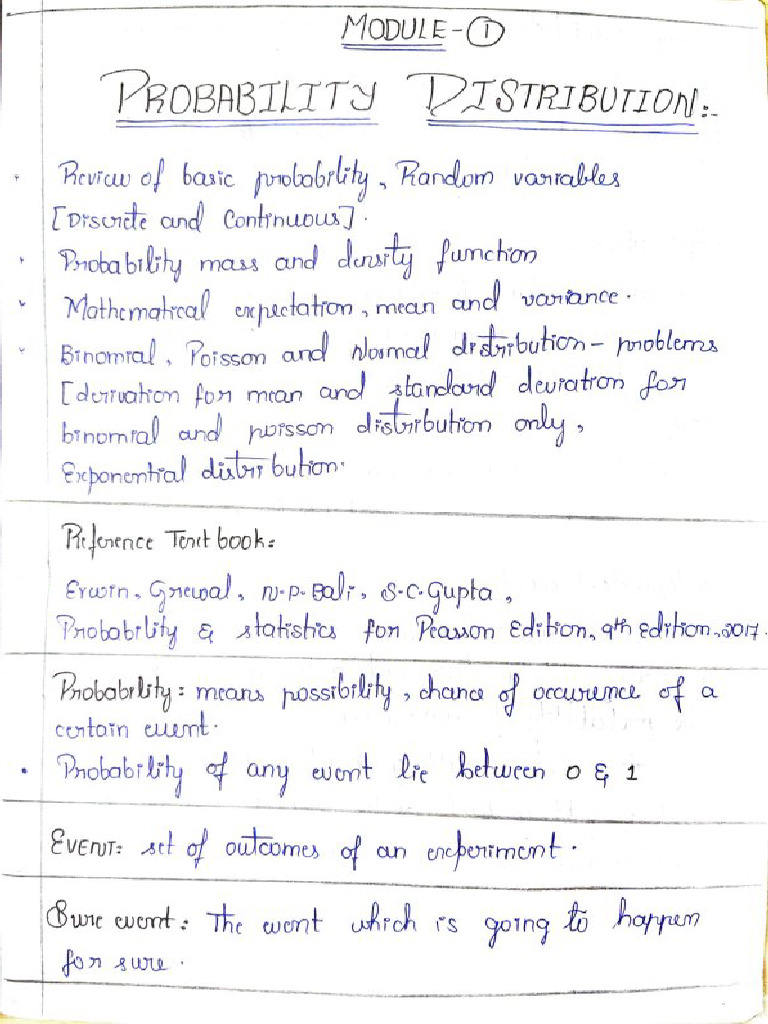 MODULE - ①
PROBABILITY DISTRIBUTION:-
• Review of basic probability, Random variables
[Discrete and Continuous].
• Probability mass and density function
• Mathematical expectation, mean and variance.
• Binomial, Poisson and Normal distribution - problems
[derivation for mean and standard deviation for
binomial and poisson distribution only,
Exponential distribution.
Reference Text book:
Erwin, Grewal, N.P. Bali, S.C. Gupta,
Probability & statistics for Pearson Edition, 9th Edition, 2017.
Probability: means possibility, chance of occurence of a
certain event.
• Probability of any event lie between 0 & 1
EVENT: set of outcomes of an experiment.
Sure event: The event which is going to happen
for sure.